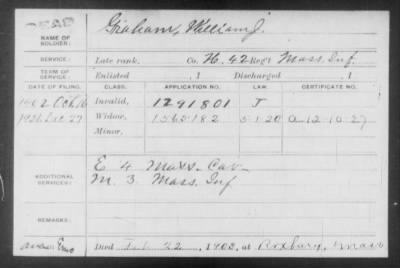 DEAD
NAME OF SOLDIER: Graham, William J.
SERVICE: Late rank, Co. H, 42 Reg't Mass. Inf.
TERM OF SERVICE: Enlisted , 1 Discharged , 1
DATE OF FILING. CLASS. APPLICATION NO. LAW. CERTIFICATE NO.
1902 Oct. Invalid, 1291801 J
1926 Dec. 27 Widow, 1565182 5-1-20 A-12-10-27
Minor,
ADDITIONAL SERVICES: E 4 Mass. Cav.
M. 3 Mass. Inf
REMARKS:
Died Feb. 22, 1903, at Roxbury, Mass